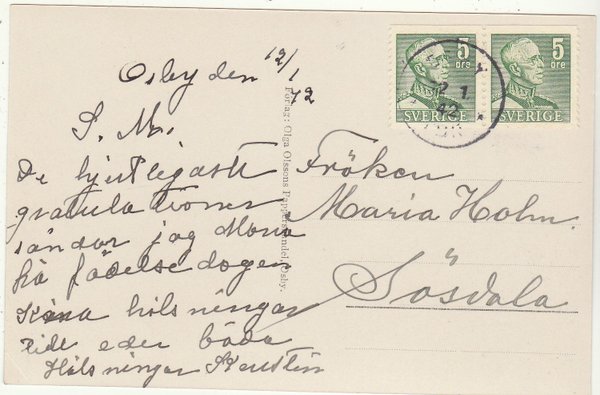 Osby den 12/1
42
S. M.
De hjertligaste
gratulationer
sändar jag Mona
på födelsedagen
Kära hälsningar
eder båda
Hälsningar Kerstin
Förlag: Olga Olssons Pappershandel, Osby.
5 5
öre öre
SVERIGE SVERIGE
1
42
Fröken
Maria Holm.
Sösdala